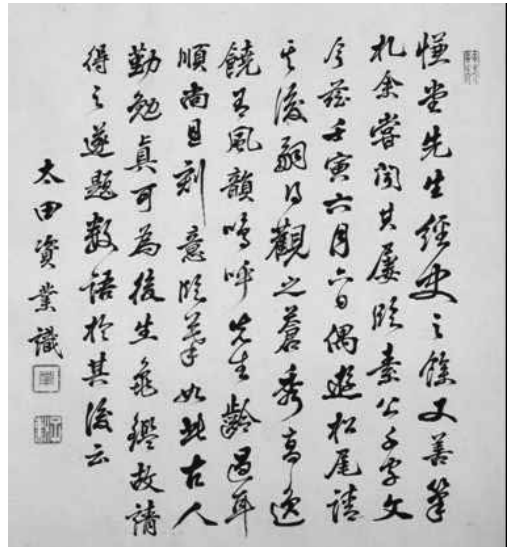 慊堂先生經史之餘又善筆
札余嘗聞其屢臨素公千字文
今茲壬寅六月六日偶遊松尾請
其後嗣得觀之蒼秀高逸
饒有風韻嗚呼先生齡過耳
順尚且刻意臨摹如此古人
勤勉真可為後生龜鑑故請
得之遂題數語於其後云
太田資業識